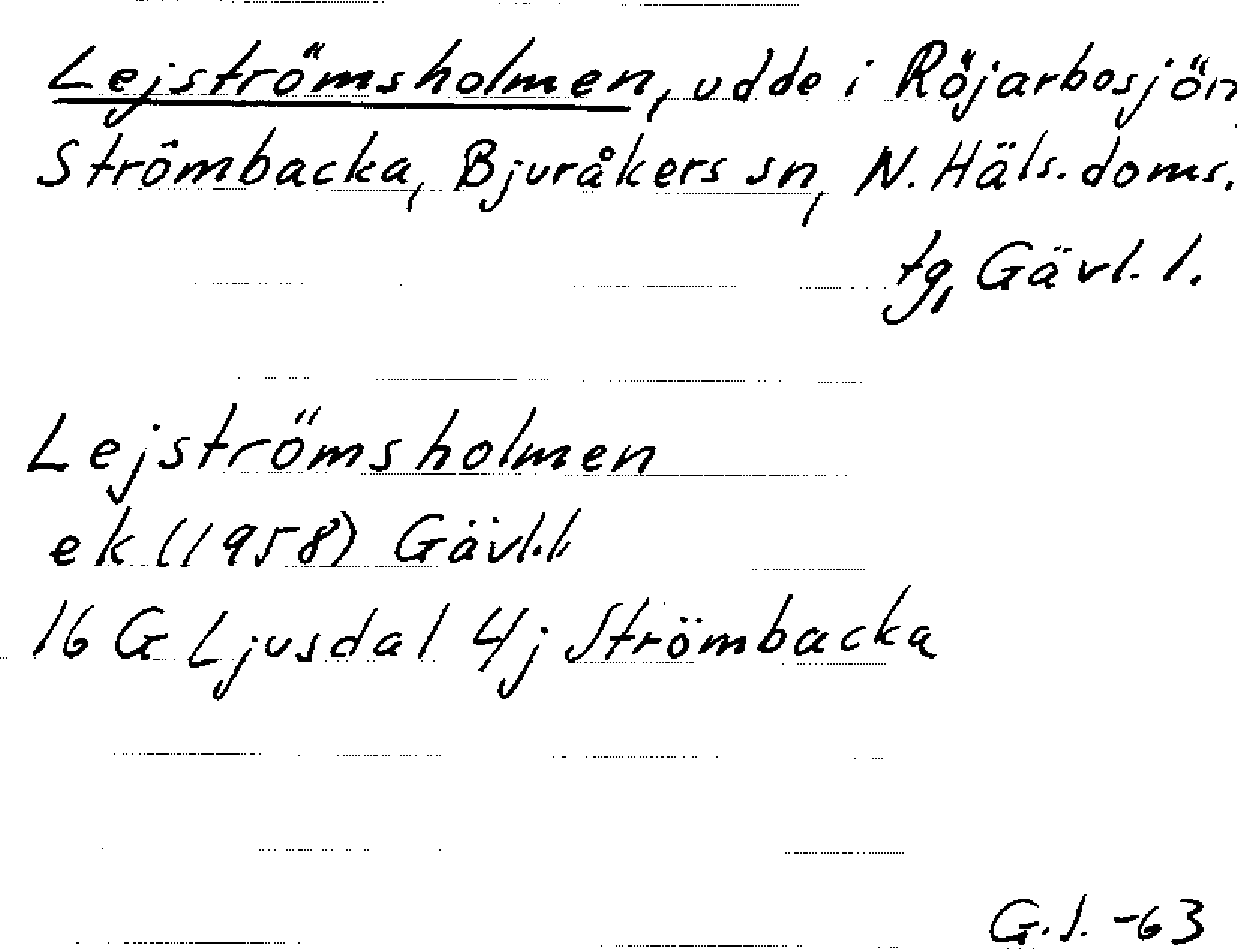 Lejströmsholmen, udde i Röjarbosjön
Strömbacka, Bjuråkers sn, N. Häls. doms.
tg, Gävl. l.
Lejströmsholmen
ek (1958) Gävl.l.
16 G Ljusdal 4j Strömbacka
G.J. -63